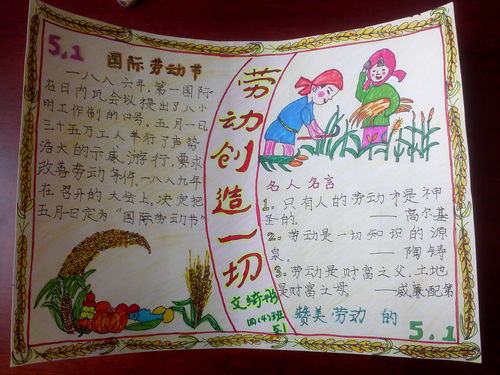 5.1
国际劳动节
一八八六年,第一国际
在日内瓦会议提出了八小
时工作制的口号。五月一日,
三十五万工人举行了声势
浩大的示威游行,要求
改善劳动条件。一八八九年
在召开的大会上,决定把
五月一日定为“国际劳动节”
劳动创造一切
文绮彤
四(4)班
5.1
名人名言
1。只有人的劳动才是神
圣的。——高尔基
2。劳动是一切知识的源
泉。——陶铸
3。劳动是财富之父,土地
是财富之母。——威廉·配第
赞美劳动的
5.1